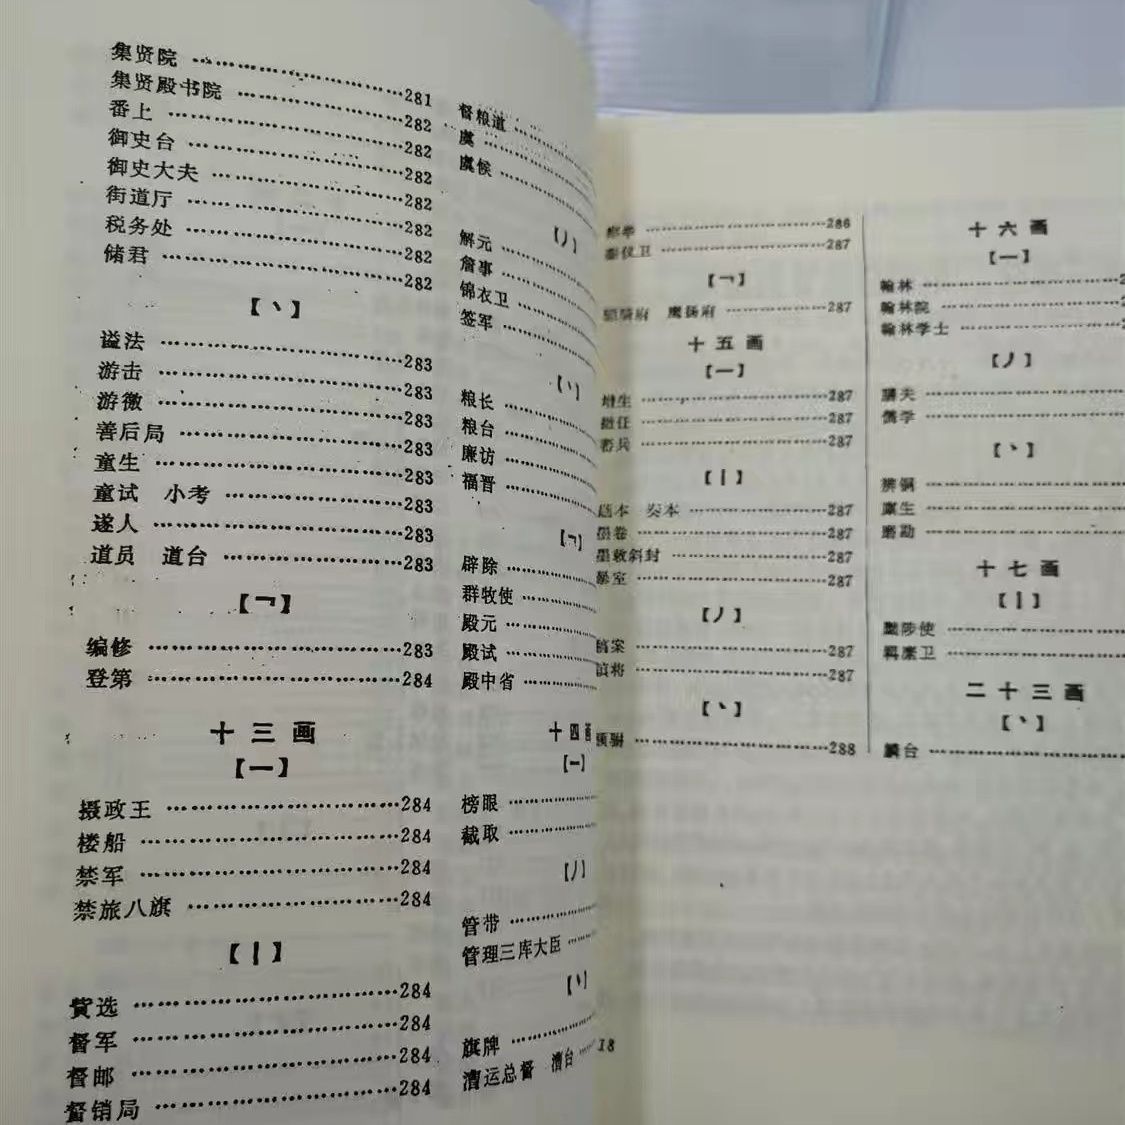 集贤院 ……………………281
集贤殿书院 ……………………282
番上 ……………………282
御史台 ……………………282
御史大夫 ……………………282
街道厅 ……………………282
税务处 ……………………282
储君 ……………………282
【丶】
谥法 ……………………283
游击 ……………………283
游徼 ……………………283
善后局 ……………………283
童生 ……………………283
童试 小考 ……………………283
遂人 ……………………283
道员 道台 ……………………283
【㇕】
编修 ……………………283
登第 ……………………284
十三画
【一】
摄政王 ……………………284
楼船 ……………………284
禁军 ……………………284
禁旅八旗 ……………………284
【丨】
赀选 ……………………284
督军 ……………………284
督邮 ……………………284
督销局 ……………………284
督粮道 ……………
虞 ……………
虞候 ……………
【丿】
解元 ……………
詹事 ……………
锦衣卫 ……………
签军 ……………
【丶】
粮长 ……………
粮台 ……………
廉访 ……………
福晋 ……………
【㇕】
辟除 ……………
群牧使 ……………
殿元 ……………
殿试 ……………
殿中省 ……………
十四画
【一】
榜眼 ……………
截取 ……………
【丿】
管带 ……………
管理三库大臣 ……
【丶】
旗牌 ……………
漕运总督 漕台 ……
18
……………………286
仪卫 ……………………287
【㇕】
骑府 鹰扬府 ……………………287
十五画
【一】
增生 ……………………287
……………………287
兵 ……………………287
【丨】
题本 奏本 ……………………287
墨卷 ……………………287
墨敕斜封 ……………………287
暴室 ……………………287
【丿】
稿案 ……………………287
镇将 ……………………287
【丶】
颜驸 ……………………288
十六画
【一】
翰林 ……………………2
翰林院 ……………………2
翰林学士 ……………………2
【丿】
膳夫 ……………………
儒学 ……………………
【丶】
辨铜 ……………………
廪生 ……………………
磨勘 ……………………
十七画
【丨】
黜陟使 ……………………
羁縻卫 ……………………
二十三画
【丶】
麟台 ……………………